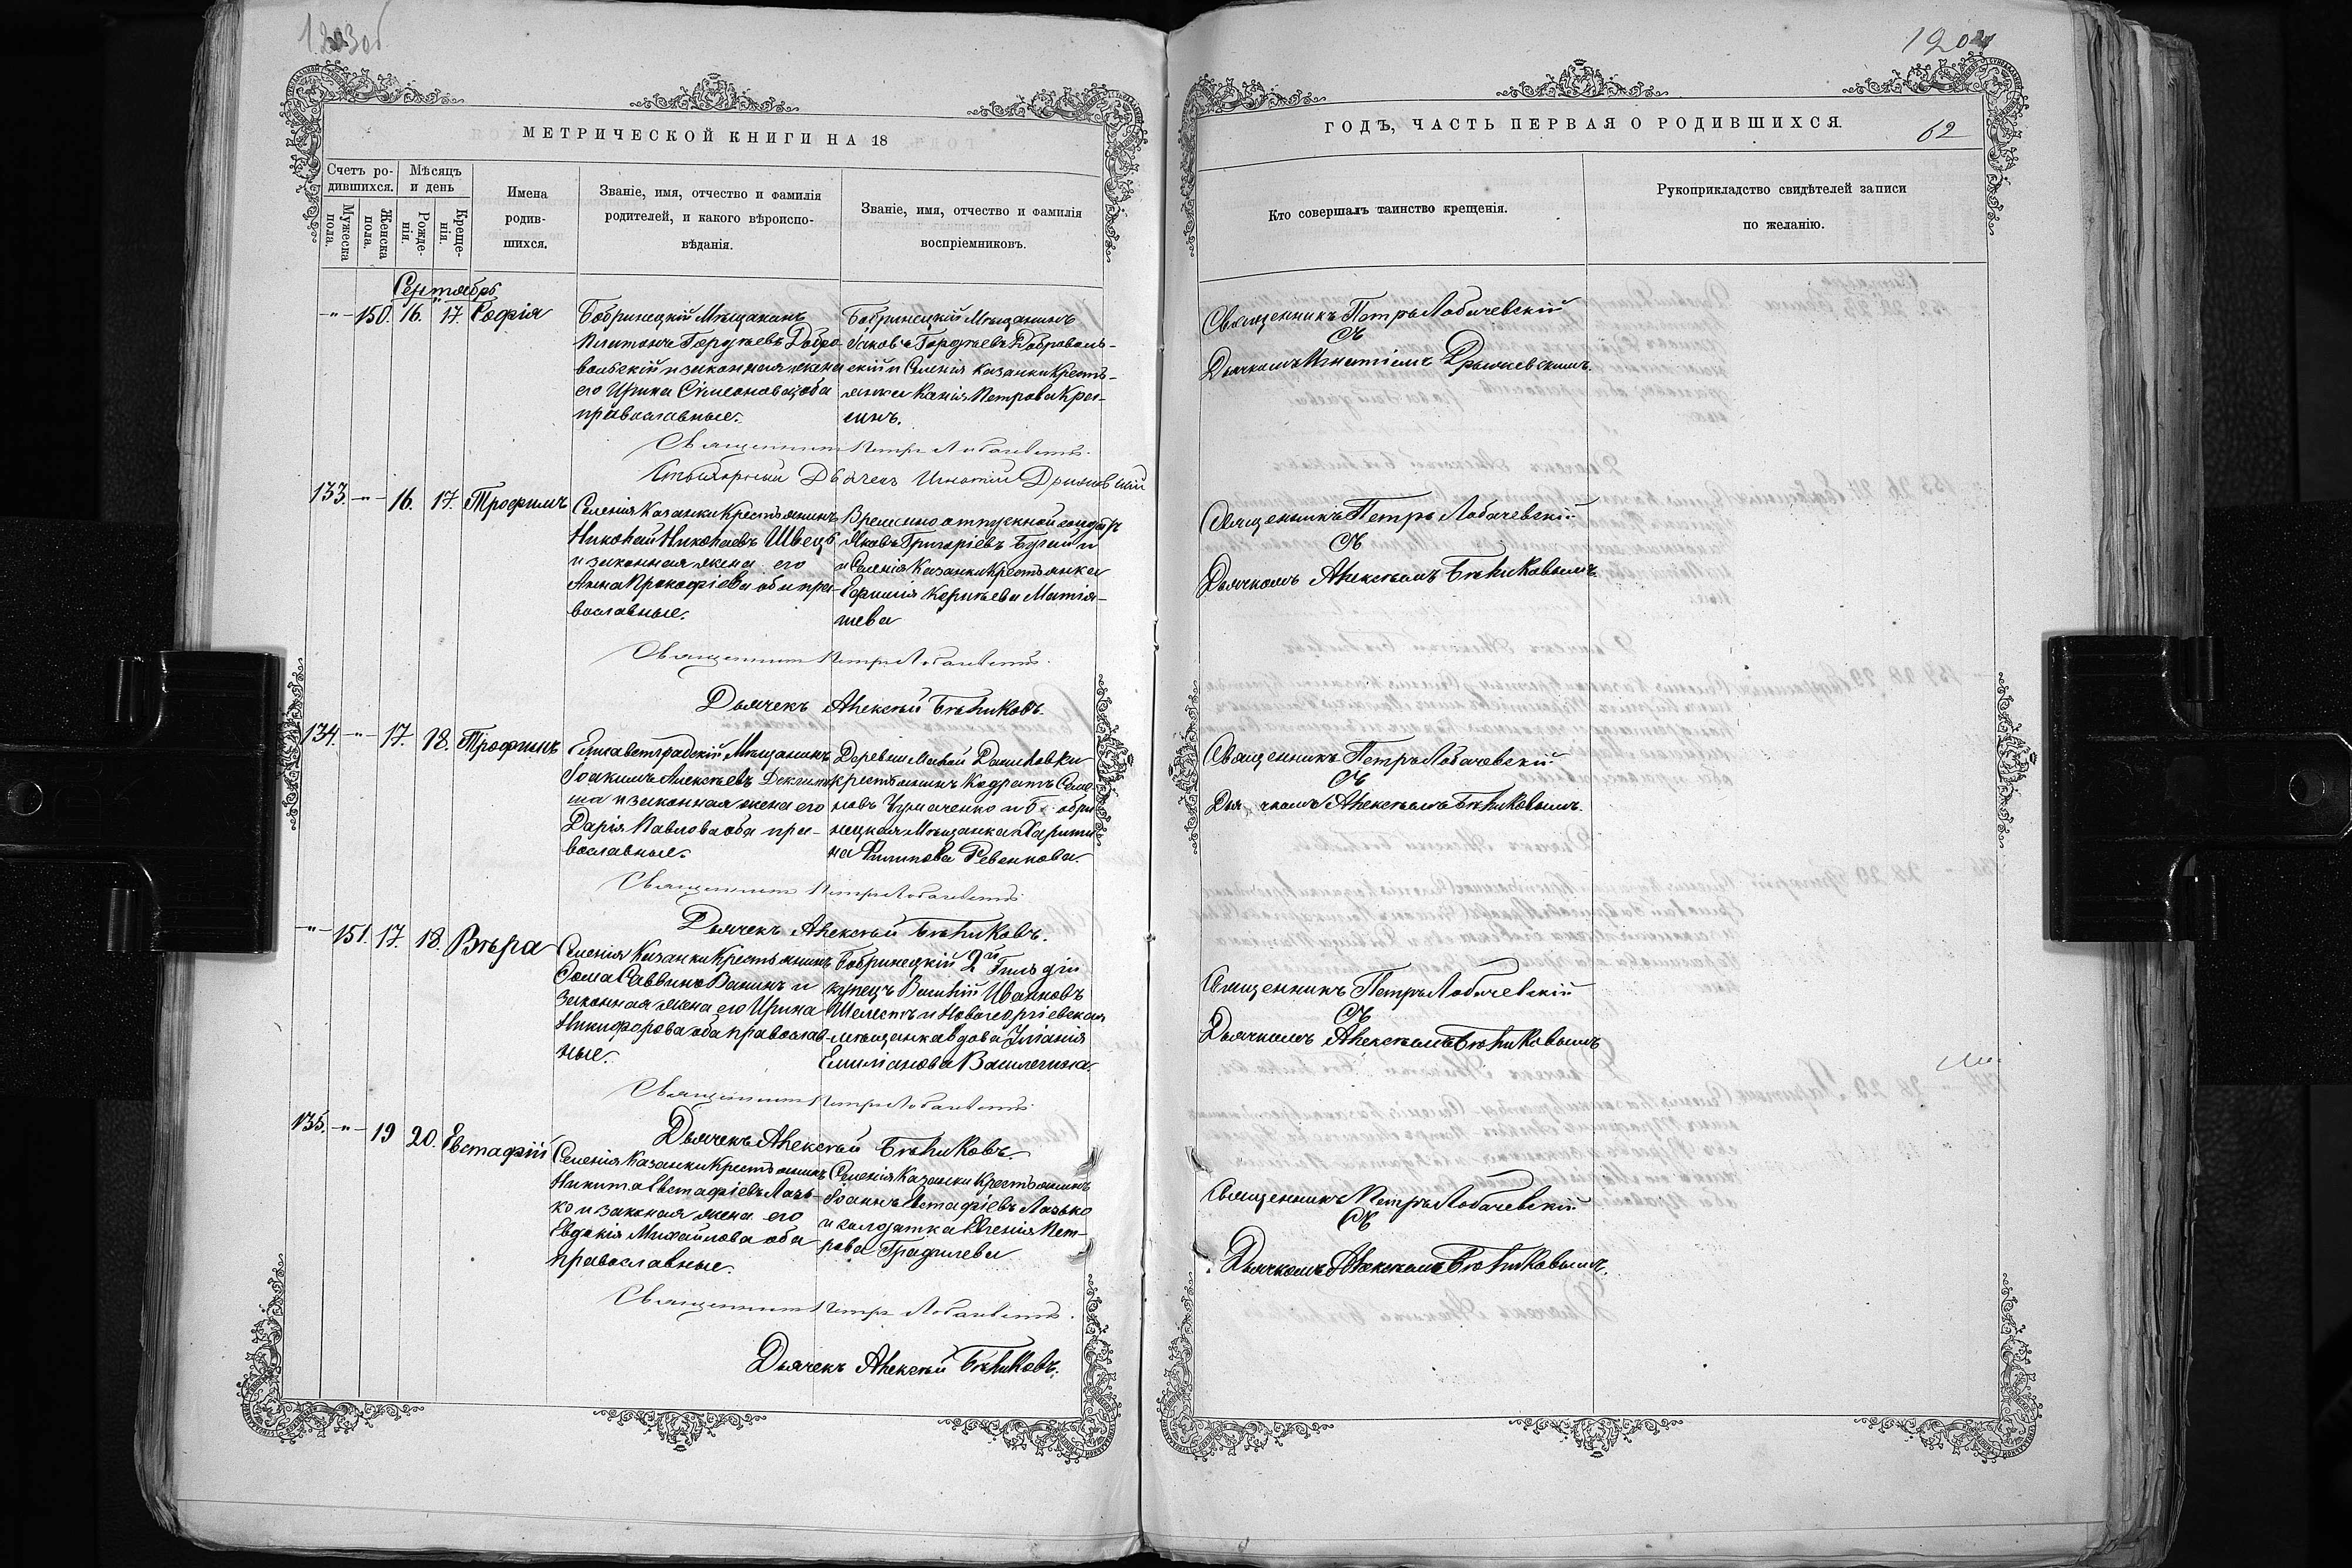 1203об
МЕТРИЧЕСКОЙ КНИГИ НА 18
Счетъ ро-
дившихся.
Мѣсяцъ
и день
Мужеска
пола.
Женска
пола.
Рожде-
нія.
Креще-
нія.
Имена
родив-
шихся.
Званіе, имя, отчество и фамилія
родителей, и какого вѣроиспо-
вѣданія.
Званіе, имя, отчество и фамилія
воспріемниковъ.
Сентябрь
-"- 150. 16. 17. Софія
Бобринецкій Мѣщанинъ
Платонъ Гордѣевъ Добро-
вольскій и законная жена
его Ирина Симеонова, оба
православные.
Бобринецкій Мѣщанинъ
Іаковъ Гордѣевъ Доброволь-
скій и Селенія Казанки Кресть-
янка Петрова
Священникъ Петръ Лобачевскій
Дьячекъ Игнатій
133. -"- 16. 17. Трофимъ
Селенія Казанки Крестьянинъ
Николай Николаевъ Швецъ
и законная жена его
Анна Прокофіева оба пра-
вославные.
Временно отпускной солдатъ
Яковъ Григоріевъ
и Селенія Казанки Крестьянка
Священникъ Петръ Лобачевскій
Дьячекъ Алексѣй Бѣликовъ.
134. -"- 17. 18. Трофимъ
Елисаветградскій Мѣщанинъ
Іоакимъ Алексѣевъ
и законная жена его
Дарія Павлова оба пра-
вославные.
Деревни
крестьянинъ Кодратъ Семе-
новъ Чумаченко и Бобри-
нецкая Мѣщанка Харити-
на Филипова Ревенкова.
Священникъ Петръ Лобачевскій
Дьячекъ Алексѣй Бѣликовъ.
-"- 151. 17. 18. Вѣра
Селенія Казанки Крестьянинъ
Ѳома Саввинъ и
законная жена его Ирина
Никифорова оба православ-
ные.
Бобринецкій 2й Гильдіи
купецъ Василій Ивановъ
Шелестъ и Новогеоргіевская
мѣщанка вдова Уліанія
Емиліанова
Священникъ Петръ Лобачевскій
Дьячекъ Алексѣй Бѣликовъ.
135. -"- 19 20. Евстафій
Селенія Казанки Крестьянинъ
Никита Евстафіевъ Лазь-
ко и законная жена его
Евдокія Михайлова оба
православные.
Селенія Казанки Крестьянинъ
Іоаннъ Евстафіевъ Лазько
и солдатка Евгенія Пет-
рова
Священникъ Петръ Лобачевскій.
Дьячекъ Алексѣй Бѣликовъ.
1204
ГОДЪ, ЧАСТЬ ПЕРВАЯ О РОДИВШИХСЯ.
62
Кто совершалъ таинство крещенія.
Рукоприкладство свидѣтелей записи
по желанію.
Священникъ Петръ Лобачевскій
Съ
Дьячкомъ Игнатіемъ
Священникъ Петръ Лобачевскій
Съ
Дьячкомъ Алексѣемъ Бѣликовымъ.
Священникъ Петръ Лобачевскій
Съ
Дьячкомъ Алексѣемъ Бѣликовымъ.
Священникъ Петръ Лобачевскій
Съ
Дьячкомъ Алексѣемъ Бѣликовымъ
Священникъ Петръ Лобачевскій
Съ
Дьячкомъ Алексѣемъ Бѣликовымъ.